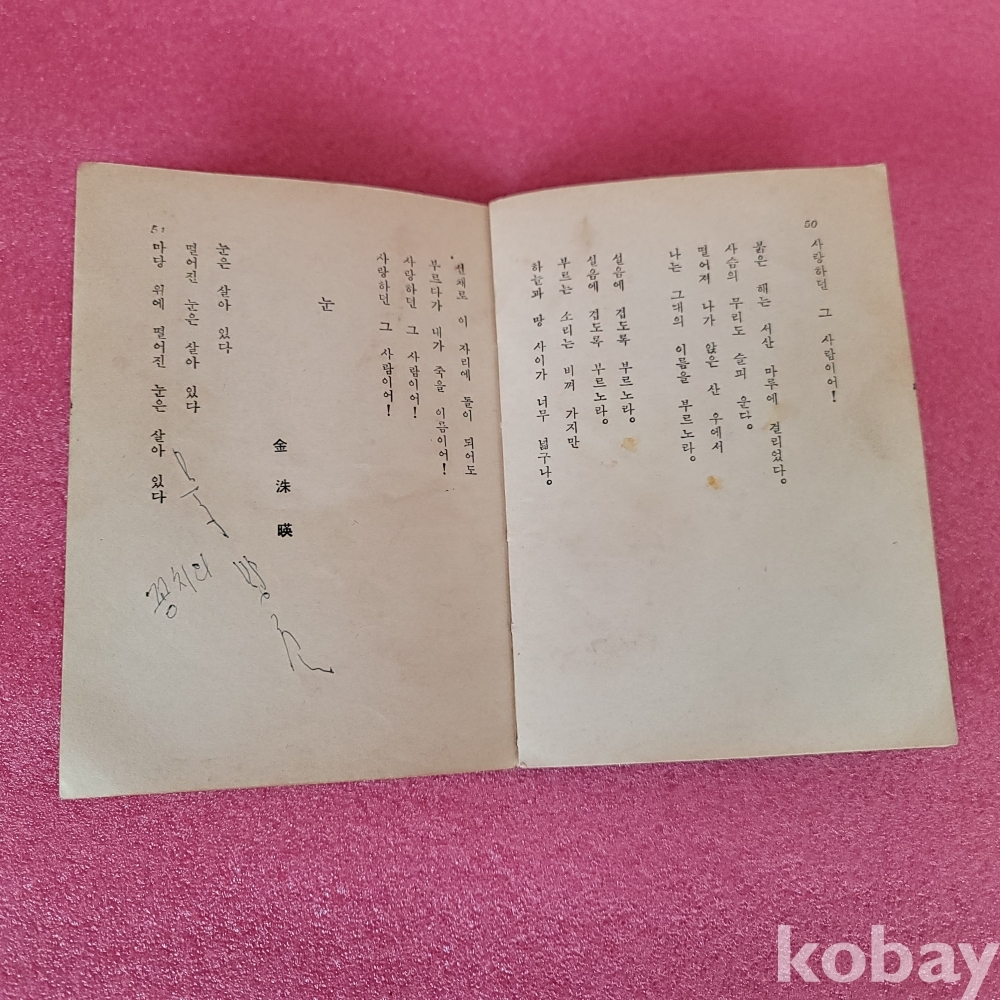 50
사랑하던 그 사람이어!
붉은 해는 서산 마루에 걸리었다。
사슴의 무리도 슬퍼 운다。
떨어져 나가 앉은 산 우에서
나는 그대의 이름을 부르노라。
설음에 겹도록 부르노라。
설음에 겹도록 부르노라。
부르는 소리는 비껴 가지만
하늘과 땅 사이가 너무 넓구나。
선채로 이 자리에 돌이 되어도
부르다가 내가 죽을 이름이어!
사랑하던 그 사람이어!
사랑하던 그 사람이어!
눈
金洙暎
눈은 살아 있다
떨어진 눈은 살아 있다
마당 위에 떨어진 눈은 살아 있다
51
kobay